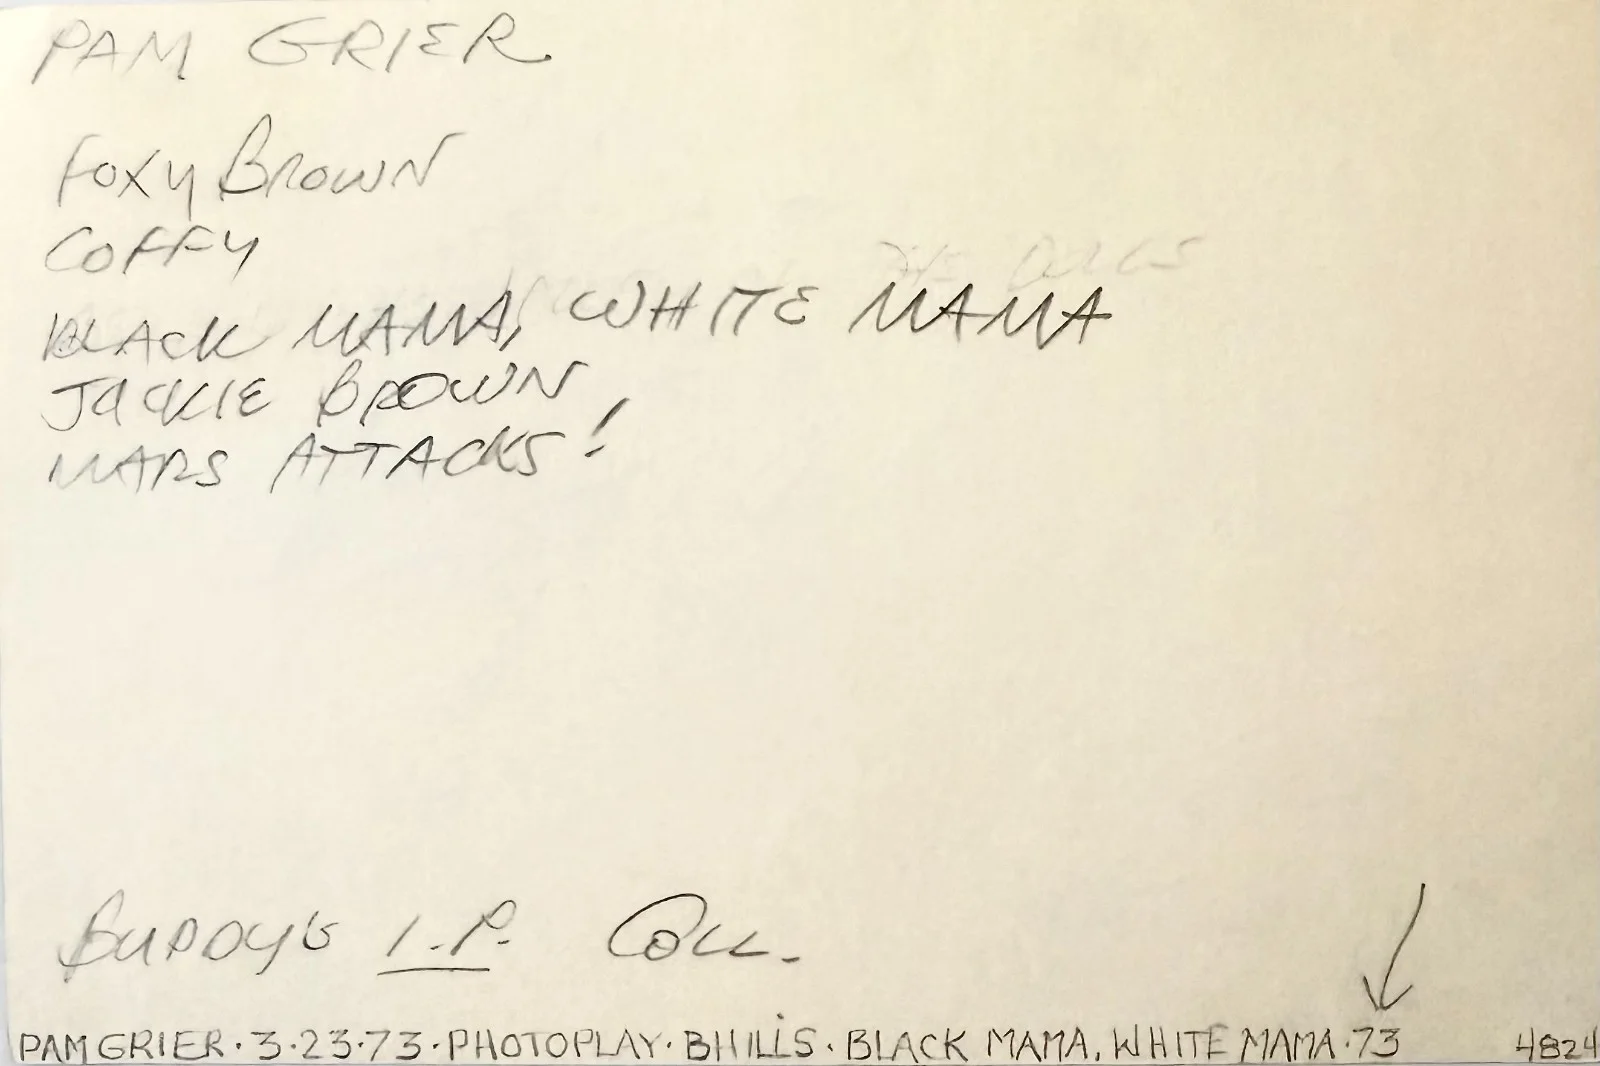 PAM GRIER
FOXY BROWN
COFFY
BLACK MAMA, WHITE MAMA
JACKIE BROWN
MARS ATTACKS!
BUDDY'S I.P. COLL.
PAM GRIER · 3·23·73 · PHOTOPLAY · BHILLS · BLACK MAMA, WHITE MAMA · 73 4824